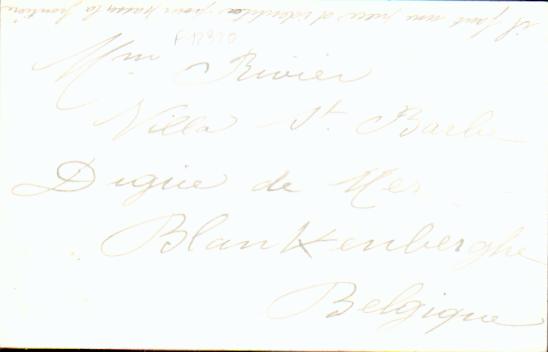 il faut une pièce d'identité pour passer la frontière
F 12920
Mme Rivier
Villa St. Barbe
Digue de Mer
Blankenberghe
Belgique